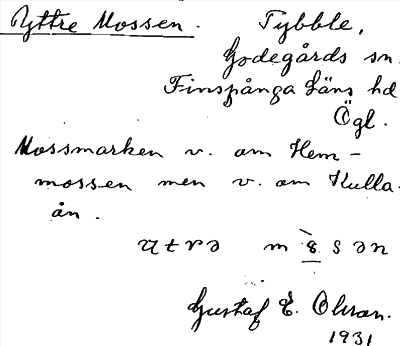 Yttre Mossen. Tybble,
Godegårds sn.
Finspånga läns hd
Ögl.
Mossmarken v. om Hem-
mossen men v. om Kulla-
ån.
Gustaf E. Olsson.
1931